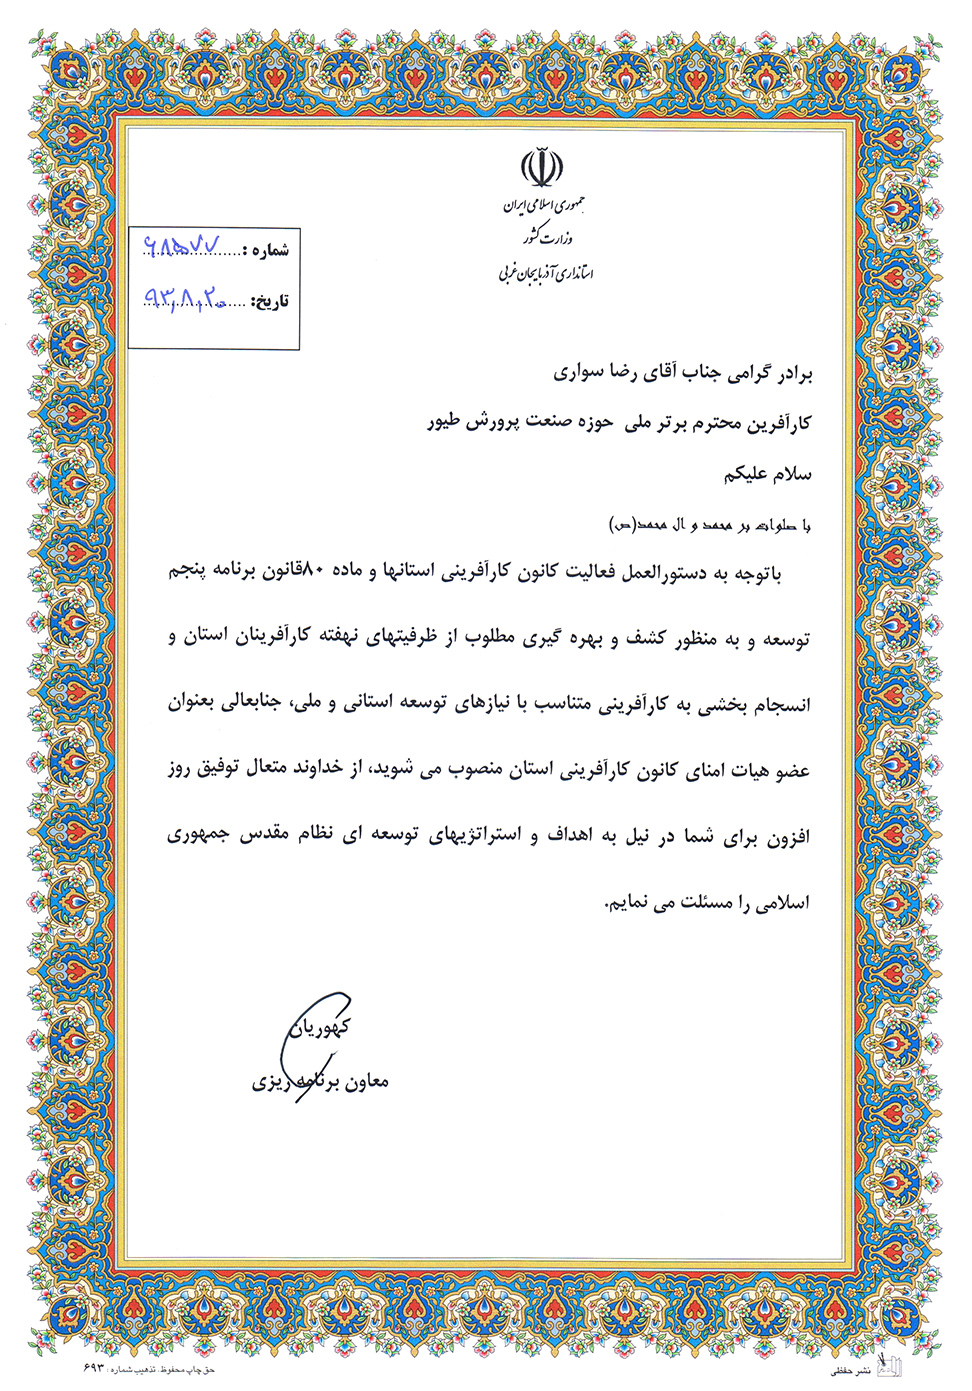 جمهوری اسلامی ایران
وزارت کشور
استانداری آذربایجان غربی
شماره : ۶۸۵۷۷
تاریخ: ۹۳,۸,۲۰
برادر گرامی جناب آقای رضا سواری
کارآفرین محترم برتر ملی حوزه صنعت پرورش طیور
سلام علیکم
با صلوات بر محمد و ال محمد(ص)
باتوجه به دستورالعمل فعالیت کانون کارآفرینی استانها و ماده ۸۰قانون برنامه پنجم
توسعه و به منظور کشف و بهره گیری مطلوب از ظرفیتهای نهفته کارآفرینان استان و
انسجام بخشی به کارآفرینی متناسب با نیازهای توسعه استانی و ملی، جنابعالی بعنوان
عضو هیات امنای کانون کارآفرینی استان منصوب می شوید، از خداوند متعال توفیق روز
افزون برای شما در نیل به اهداف و استراتژیهای توسعه ای نظام مقدس جمهوری
اسلامی را مسئلت می نمایم.
کهوریان
معاون برنامه ریزی
نشر حفظی
حق چاپ محفوظ. تذهیب شماره : ۶۹۳